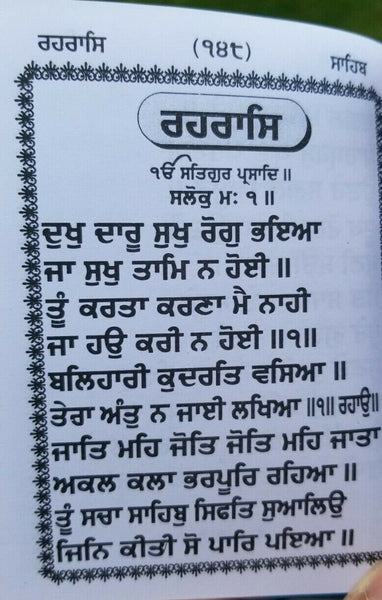 ਰਹਰਾਸਿ (੧੪੯) ਸਾਹਿਬ
ਰਹਰਾਸਿ
ੴ ਸਤਿਗੁਰ ਪ੍ਰਸਾਦਿ ॥
ਸਲੋਕੁ ਮਃ ੧ ॥
ਦੁਖੁ ਦਾਰੂ ਸੁਖੁ ਰੋਗੁ ਭਇਆ
ਜਾ ਸੁਖੁ ਤਾਮਿ ਨ ਹੋਈ ॥
ਤੂੰ ਕਰਤਾ ਕਰਣਾ ਮੈ ਨਾਹੀ
ਜਾ ਹਉ ਕਰੀ ਨ ਹੋਈ ॥੧॥
ਬਲਿਹਾਰੀ ਕੁਦਰਤਿ ਵਸਿਆ ॥
ਤੇਰਾ ਅੰਤੁ ਨ ਜਾਈ ਲਖਿਆ ॥੧॥ ਰਹਾਉ॥
ਜਾਤਿ ਮਹਿ ਜੋਤਿ ਜੋਤਿ ਮਹਿ ਜਾਤਾ
ਅਕਲ ਕਲਾ ਭਰਪੂਰਿ ਰਹਿਆ ॥
ਤੂੰ ਸਚਾ ਸਾਹਿਬੁ ਸਿਫਤਿ ਸੁਆਲਿਉ
ਜਿਨਿ ਕੀਤੀ ਸੋ ਪਾਰਿ ਪਇਆ ॥